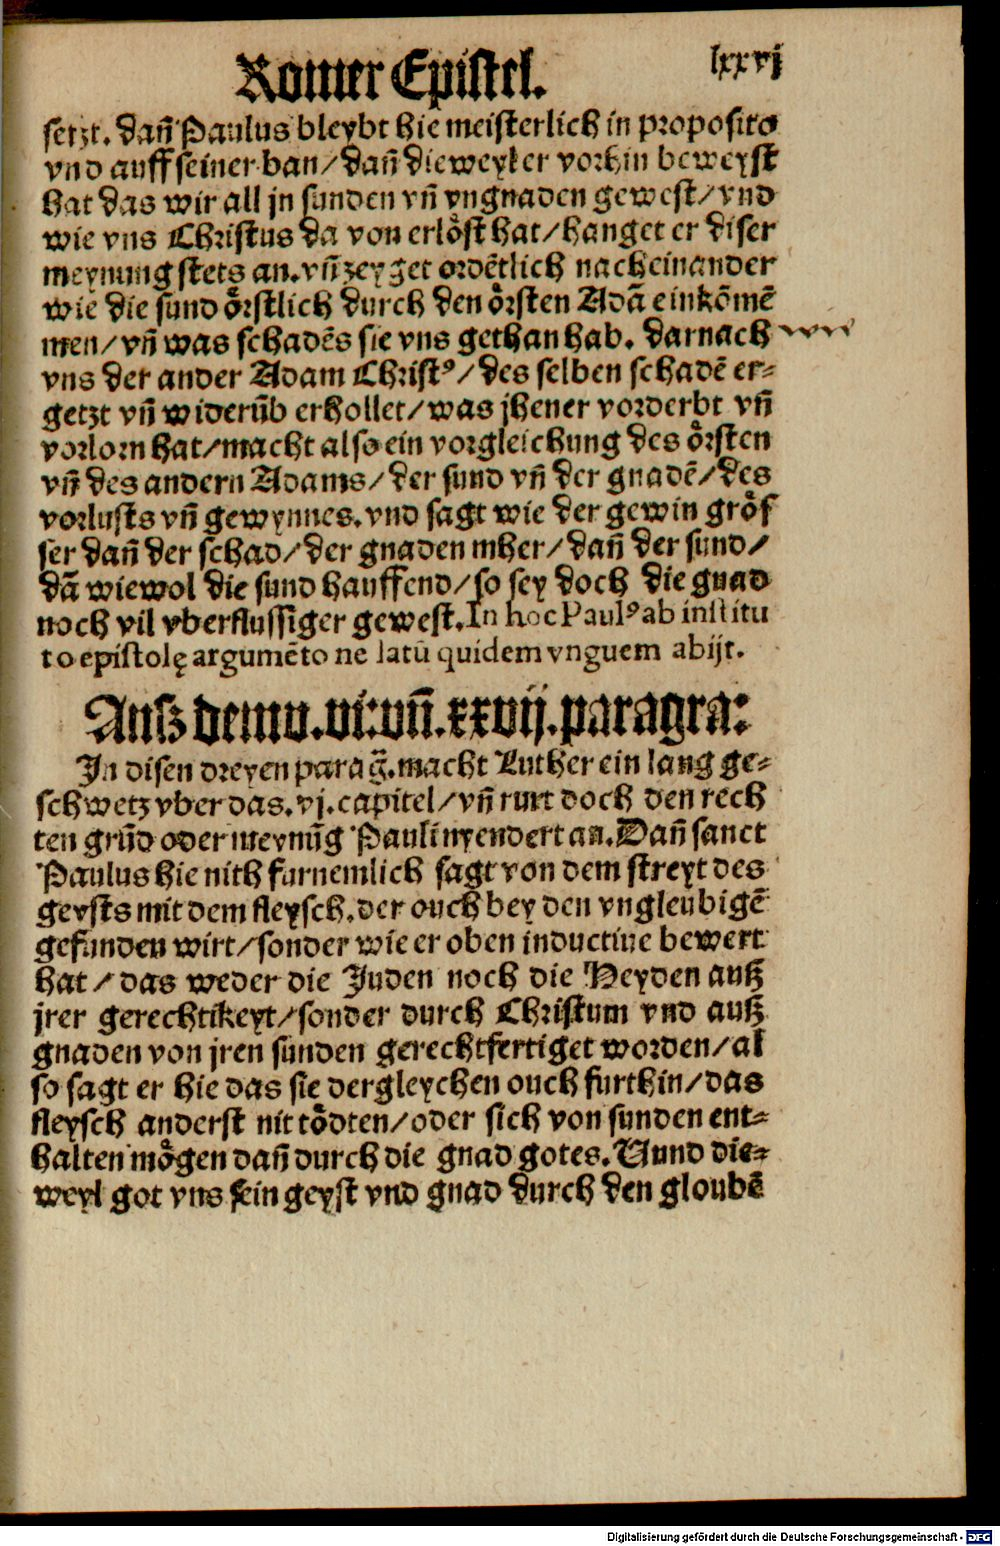 Romer Epistel. lxxvj
setzt. dañ Paulus bleybt hie meisterlich in proposito
vnd auff seiner ban/ dañ dieweyl er vorhin beweyst
hat das wir all jn sunden vñ vngnaden gewest/ vnd
wie vns Christus da von erlöst hat/ hanget er diser
meynung stets an. vñ zeyget ordētlich nacheinander
wie die sund örstlich durch den örsten Adā einkōmē
men/ vñ was schadēs sie vns gethan hab. darnach
vns der ander Adam Christꝰ/ des selben schadē er-
getzt vñ widerūb erhollet/ was jhener vorderbt vñ
vorlorn hat/ macht also ein vorgleichung des örsten
vñ des andern Adams/ der sund vñ der gnadē/ des
vorlusts vñ gewynnes. vnd sagt wie der gewin gröſ
ser dañ der schad/ der gnaden mher/ dañ der sund/
dā wiewol die sund hauffend/ so sey doch die gnad
noch vil vberflussiger gewest. In hoc Paulꝰ ab institu
to epistolę argumēto ne latū quidem vnguem abijt.
Ausz dem v. vi. vñ. xxvij. paragra:
In disen dreyen parag̃. macht Luther ein lang ge-
schwetz vber das. vj. capitel/ vñ rurt doch den rech
ten grūd oder meynūg Pauli nyendert an. Dañ sanct
Paulus hie nith furnemlich sagt von dem streyt des
geysts mit dem fleysch. der ouch bey den vngleubigē
gefunden wirt/ sonder wie er oben inductiue bewert
hat/ das weder die Juden noch die Heyden auß
jrer gerechtikeyt/ sonder durch Christum vnd auß
gnaden von jren sunden gerechtfertiget worden/ al
so sagt er hie das sie dergleychen ouch furthin/ das
fleysch anderst nit tödten/ oder sich von sunden ent-
halten mögen dañ durch die gnad gotes. Nund die-
weyl got vns sein geyst vnd gnad durch den gloubē
Digitalisierung gefördert durch die Deutsche Forschungsgemeinschaft - DFG